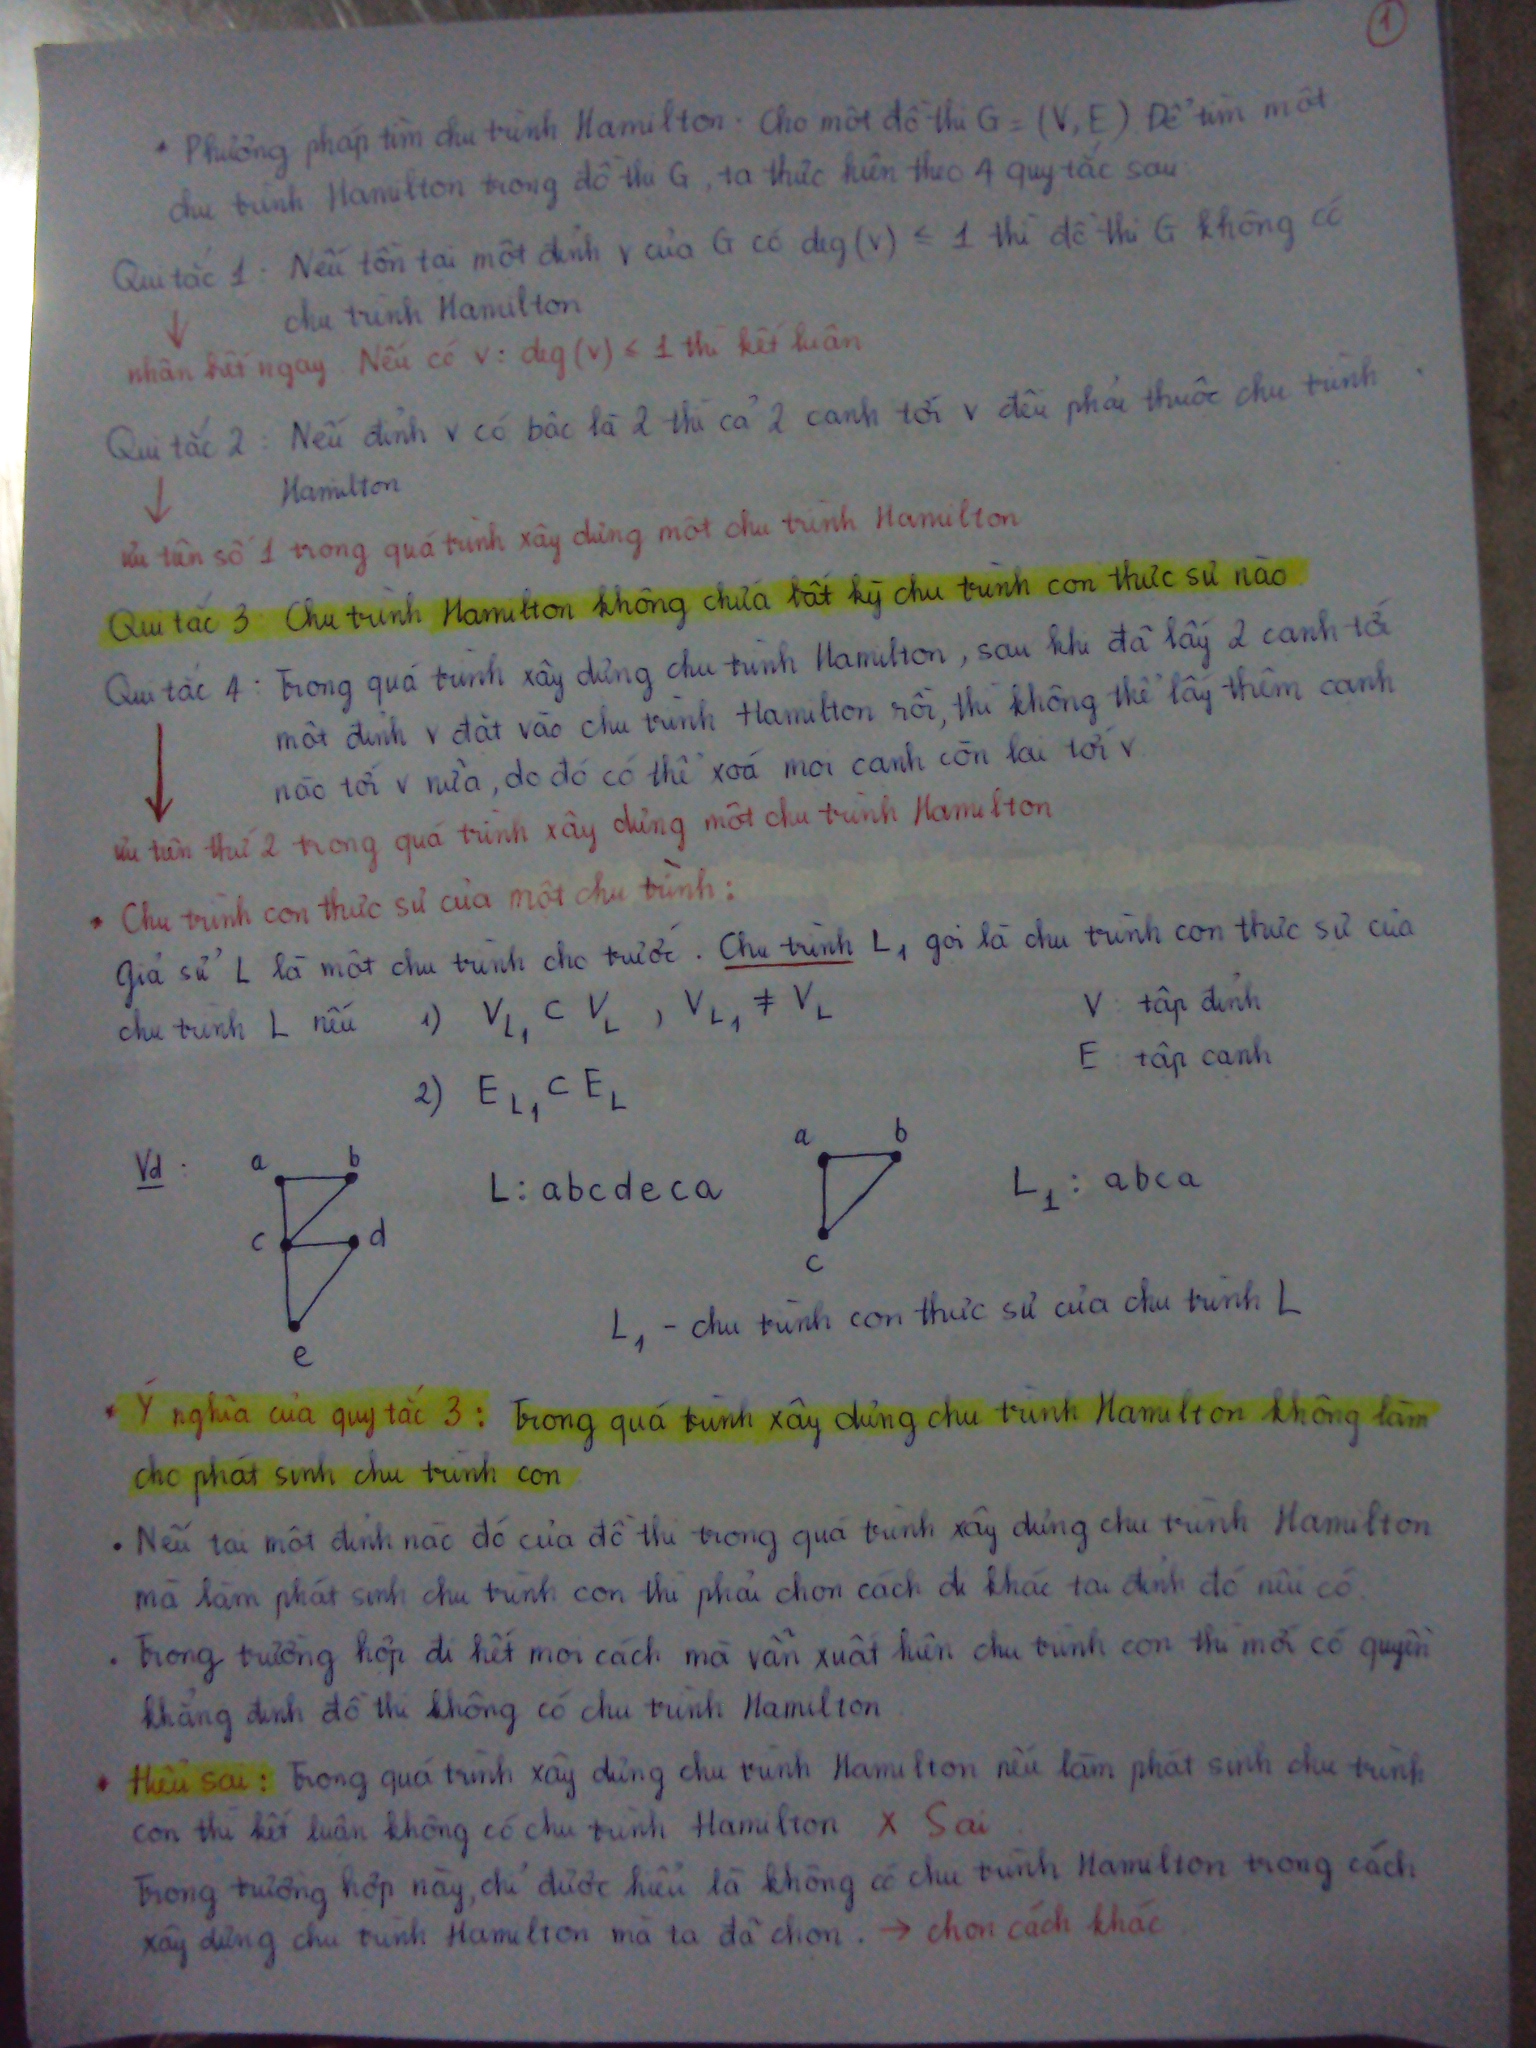 1
* Phương pháp tìm chu trình Hamilton. Cho một đồ thị G = (V, E). Để tìm một
chu trình Hamilton trong đồ thị G, ta thực hiện theo 4 quy tắc sau
Qui tắc 1: Nếu tồn tại một đỉnh v của G có deg(v) ≤ 1 thì đồ thị G không có
chu trình Hamilton
↓
nhận biết ngay. Nếu có v: deg(v) ≤ 1 thì kết luận
Qui tắc 2: Nếu đỉnh v có bậc là 2 thì cả 2 cạnh tới v đều phải thuộc chu trình
Hamilton
↓
ưu tiên số 1 trong quá trình xây dựng một chu trình Hamilton
Qui tắc 3: Chu trình Hamilton không chứa bất kỳ chu trình con thực sự nào.
Qui tắc 4: Trong quá trình xây dựng chu trình Hamilton, sau khi đã lấy 2 cạnh tới
một đỉnh v đặt vào chu trình Hamilton rồi, thì không thể lấy thêm cạnh
nào tới v nữa, do đó có thể xoá mọi cạnh còn lại tới v.
↓
ưu tiên thứ 2 trong quá trình xây dựng một chu trình Hamilton
* Chu trình con thực sự của một chu trình:
Giả sử L là một chu trình cho trước. Chu trình L₁ gọi là chu trình con thực sự của
chu trình L nếu 1) V_L₁ ⊂ V_L , V_L₁ ≠ V_L V: tập đỉnh
2) E_L₁ ⊂ E_L E: tập cạnh
Vd: a b L: abcdeca a b L₁: abca
c d c
e L₁ - chu trình con thực sự của chu trình L
* Ý nghĩa của quy tắc 3: Trong quá trình xây dựng chu trình Hamilton không làm
cho phát sinh chu trình con
• Nếu tại một đỉnh nào đó của đồ thị trong quá trình xây dựng chu trình Hamilton
mà làm phát sinh chu trình con thì phải chọn cách đi khác tại đỉnh đó nếu có.
• Trong trường hợp đi hết mọi cách mà vẫn xuất hiện chu trình con thì mới có quyền
khẳng định đồ thị không có chu trình Hamilton.
* Hiểu sai: Trong quá trình xây dựng chu trình Hamilton nếu làm phát sinh chu trình
con thì kết luận không có chu trình Hamilton X Sai.
Trong trường hợp này, chỉ được hiểu là không có chu trình Hamilton trong cách
xây dựng chu trình Hamilton mà ta đã chọn. → chọn cách khác.